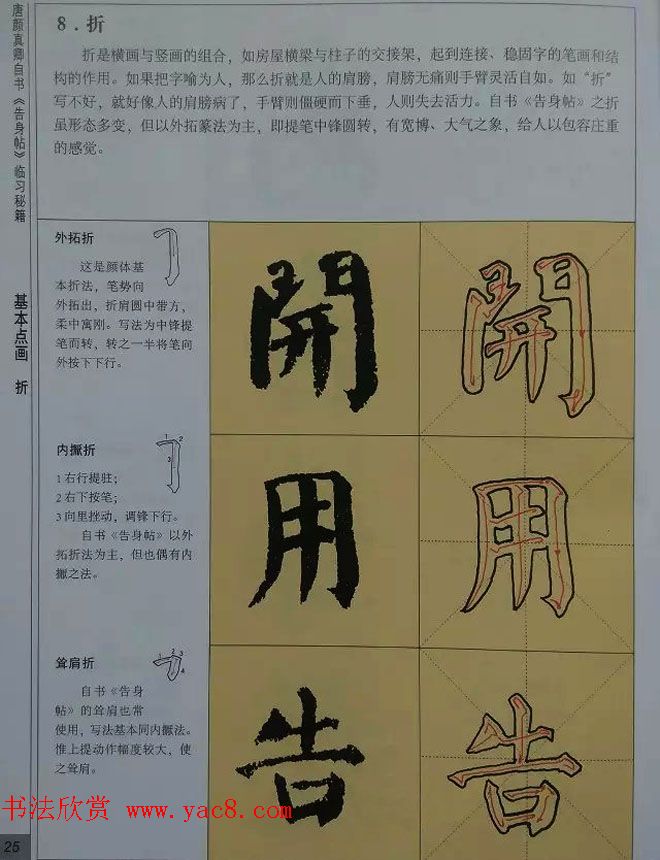 唐颜真卿自书《告身帖》临习秘籍
基本点画 折
8．折
折是横画与竖画的组合，如房屋横梁与柱子的交接架，起到连接、稳固字的笔画和结
构的作用。如果把字喻为人，那么折就是人的肩膀，肩膀无痛则手臂灵活自如。如“折”
写不好，就好像人的肩膀病了，手臂则僵硬而下垂，人则失去活力。自书《告身帖》之折
虽形态多变，但以外拓篆法为主，即提笔中锋圆转，有宽博、大气之象，给人以包容庄重
的感觉。
外拓折
这是颜体基
本折法，笔势向
外拓出，折肩圆中带方，
柔中寓刚。写法为中锋提
笔而转，转之一半将笔向
外按下下行。
開
開
内擫折
1 2
3
1右行提驻；
2右下按笔；
3向里挫动，调锋下行。
自书《告身帖》以外
拓折法为主，但也偶有内
擫之法。
用
用
耸肩折
1 2 3
4
自书《告身
帖》的耸肩也常
使用，写法基本同内擫法。
惟上提动作幅度较大，使
之耸肩。
告
告
书法欣赏 www.yac8.com
25